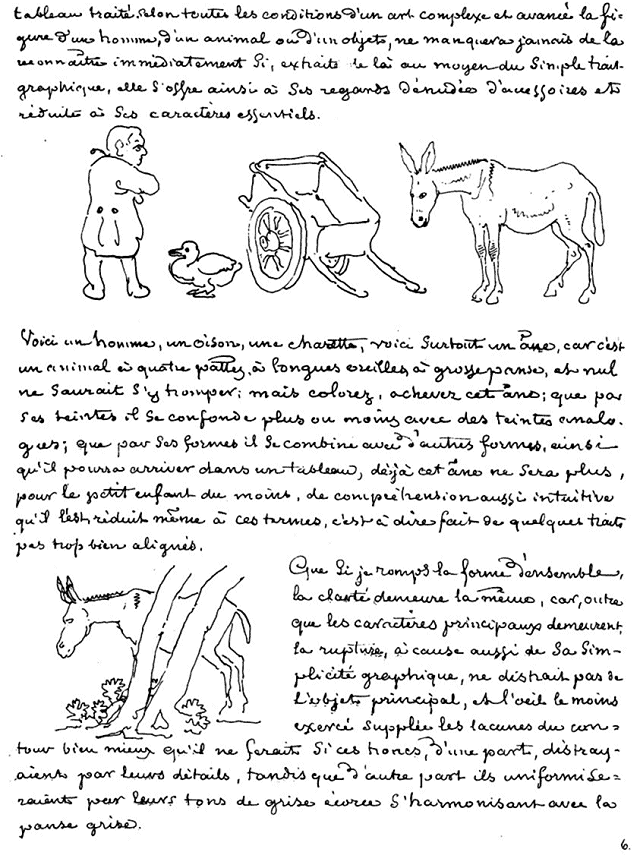 tableau traité selon toutes les conditions d'un art complexe et avancé la fi-
gure d'un homme, d'un animal ou d'un objet, ne manquera jamais de la
reconnaître immédiatement si, extraite de là au moyen du simple trait
graphique, elle s'offre ainsi à ses regards dénudée d'accessoires et
réduite à ses caractères essentiels.
Voici un homme, un oison, une charette, voici surtout un âne, car c'est
un animal à quatre pattes, à longues oreilles, à grosse panse, et nul
ne saurait s'y tromper; mais colorez, achevez cet âne; que par
ses teintes il se confonde plus ou moins avec des teintes analo-
gues; que par ses formes il se combine avec d'autres formes, ainsi
qu'il pourra arriver dans un tableau, déjà cet âne ne sera plus,
pour le petit enfant du moins, de compréhension aussi intuitive
qu'il l'est réduit même à ces termes, c'est à dire fait de quelques traits
pas trop bien alignés.
Que si je romps la forme d'ensemble,
la clarté demeure la même, car, outre
que les caractères principaux demeurent,
la rupture, à cause aussi de sa sim-
plicité graphique, ne distrait pas de
l'objet principal, et l'oeil le moins
exercé supplée les lacunes du con=
tour bien mieux qu'il ne ferait si ces troncs, d'une part, distray-
aient par leurs détails, tandis que d'autre part ils uniformise=
raient par leurs tons de grise écorce s'harmonisant avec la
panse grise.
6.